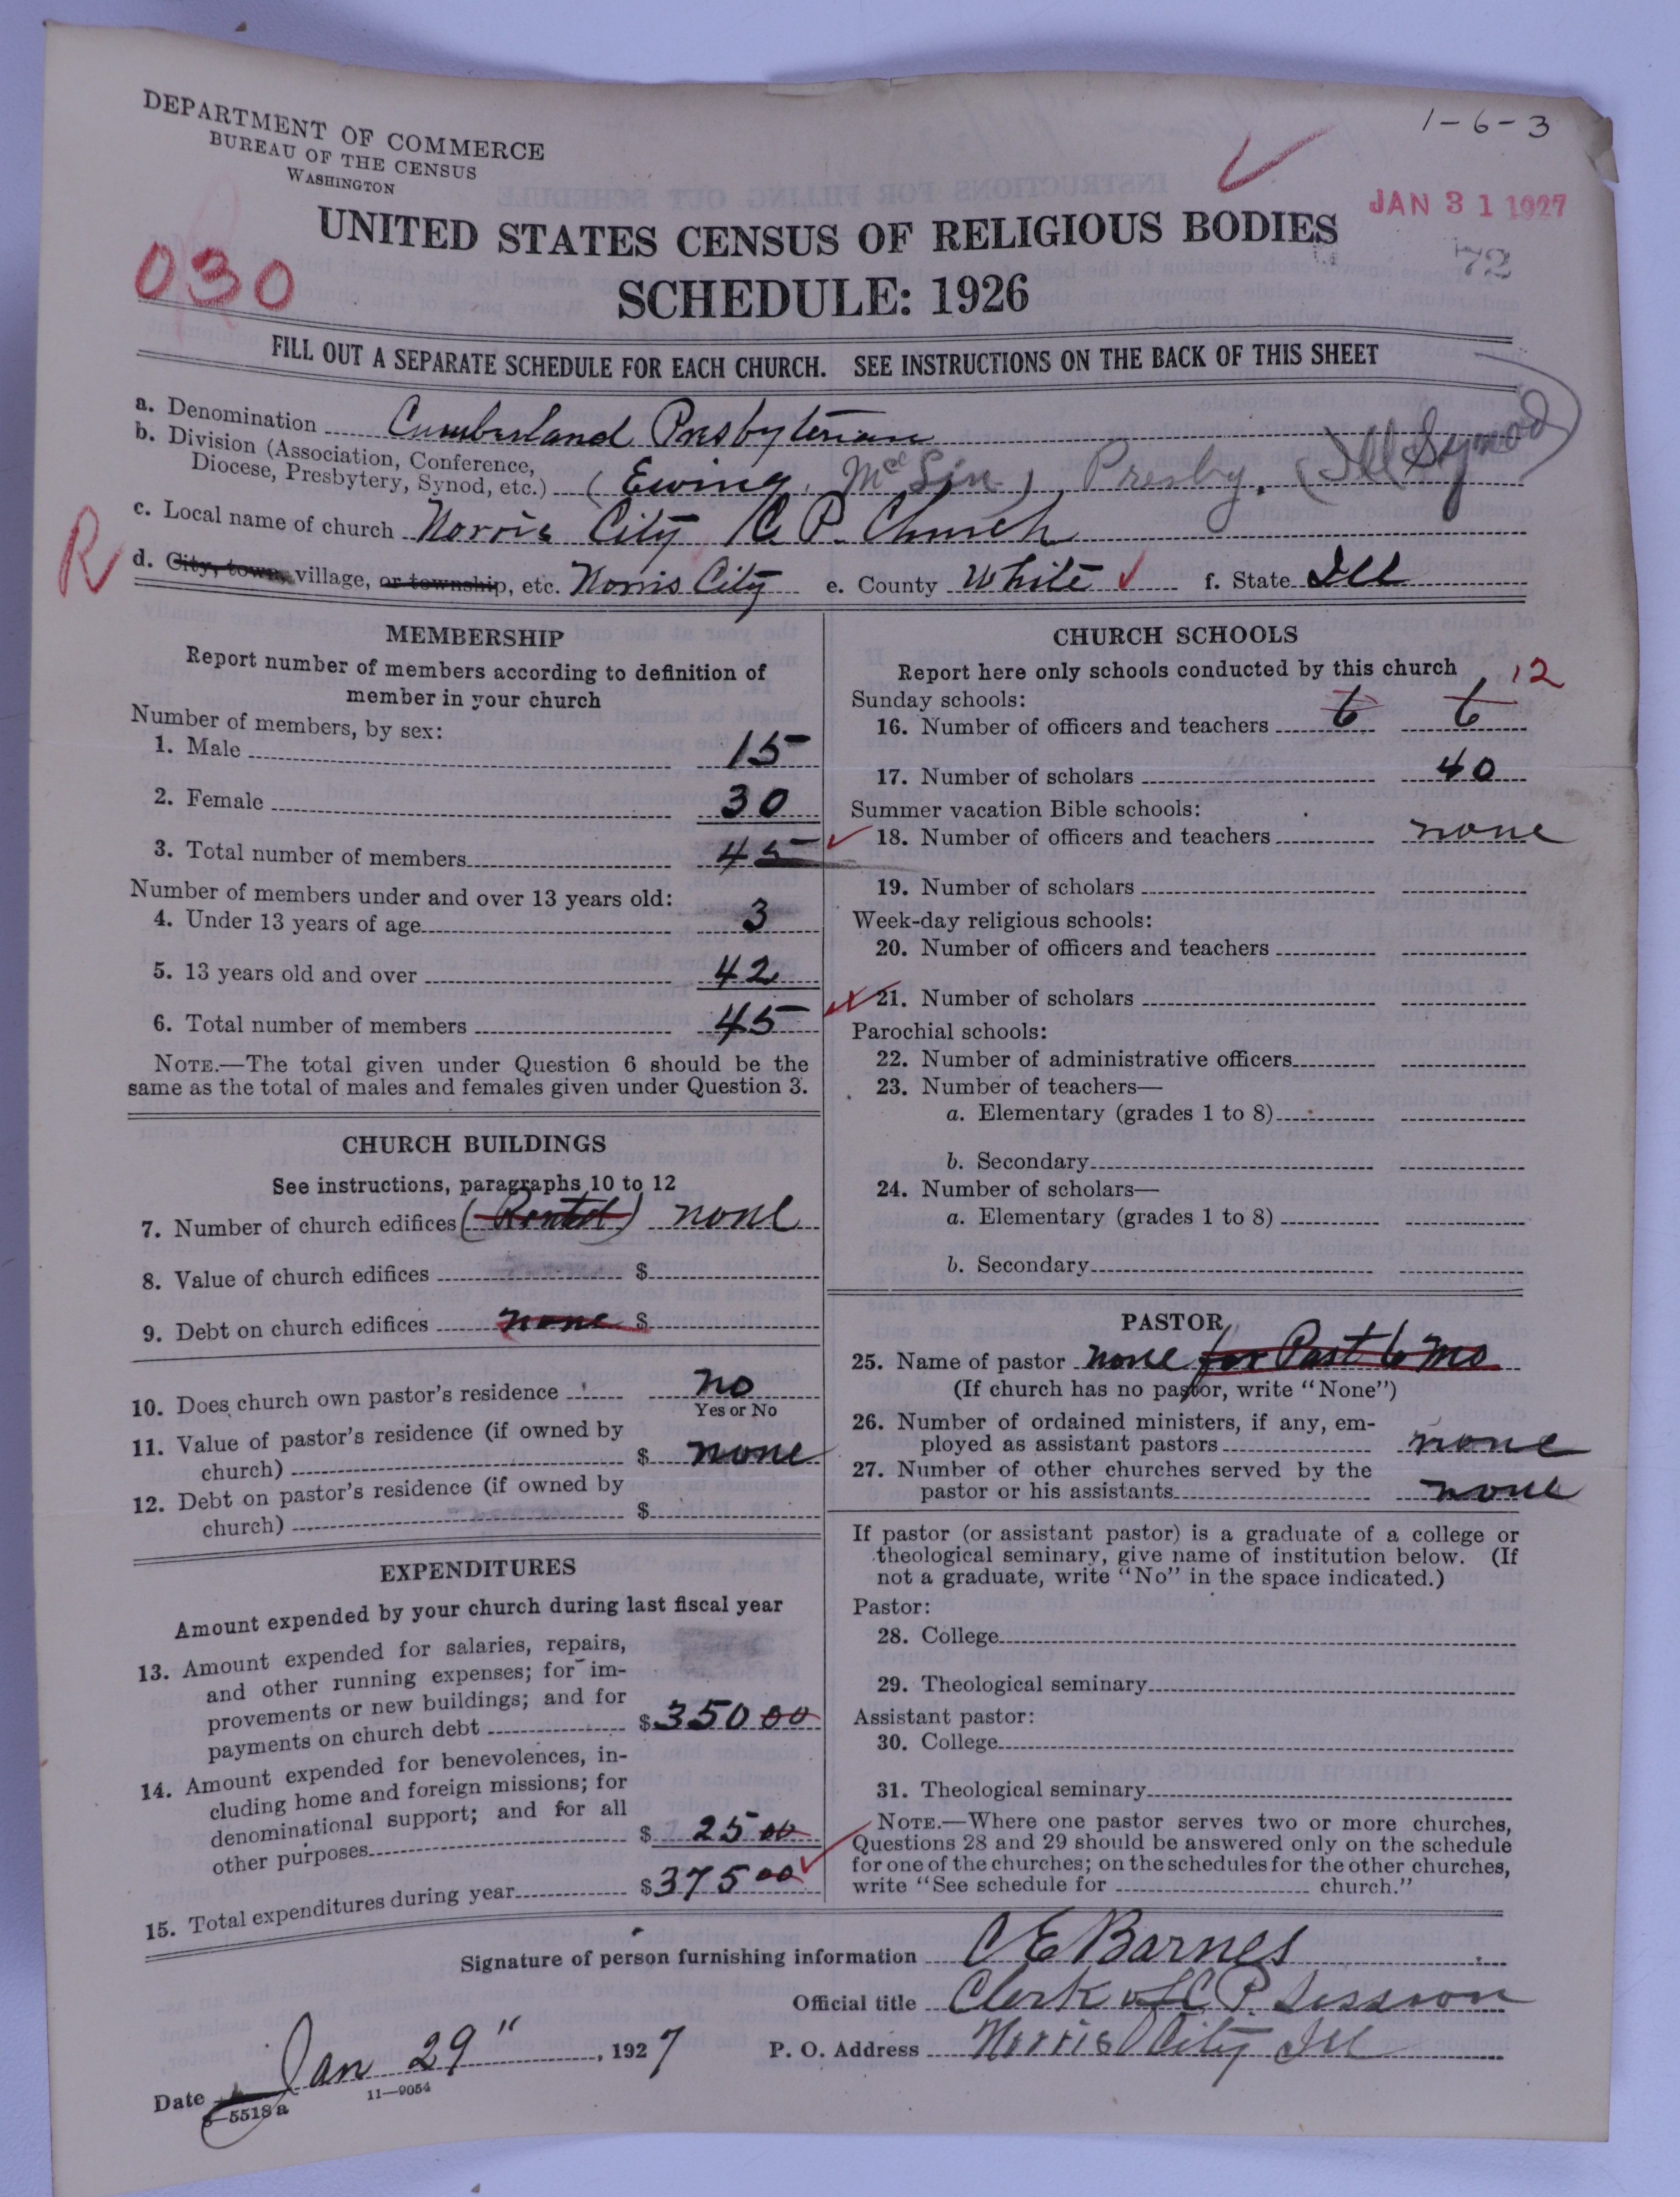 DEPARTMENT OF COMMERCE
BUREAU OF THE CENSUS
WASHINGTON
1-6-3
JAN 31 1927
72
030
UNITED STATES CENSUS OF RELIGIOUS BODIES
SCHEDULE: 1926
FILL OUT A SEPARATE SCHEDULE FOR EACH CHURCH. SEE INSTRUCTIONS ON THE BACK OF THIS SHEET
a. Denomination Cumberland Presbyterian
b. Division (Association, Conference,
Diocese, Presbytery, Synod, etc.) (Ewing, McLin) Presby. (Ill Synod)
c. Local name of church Norris City C. P. Church
R
d. City, town, village, or township, etc. Norris City e. County White f. State Ill
MEMBERSHIP
Report number of members according to definition of
member in your church
Number of members, by sex:
1. Male 15
2. Female 30
3. Total number of members 45
Number of members under and over 13 years old:
4. Under 13 years of age 3
5. 13 years old and over 42
6. Total number of members 45
NOTE.—The total given under Question 6 should be the
same as the total of males and females given under Question 3.
CHURCH BUILDINGS
See instructions, paragraphs 10 to 12
7. Number of church edifices (Rented) none
8. Value of church edifices $
9. Debt on church edifices none $
10. Does church own pastor's residence no
Yes or No
11. Value of pastor's residence (if owned by
church) $ none
12. Debt on pastor's residence (if owned by
church) $
EXPENDITURES
Amount expended by your church during last fiscal year
13. Amount expended for salaries, repairs,
and other running expenses; for im-
provements or new buildings; and for
payments on church debt $350 00
14. Amount expended for benevolences, in-
cluding home and foreign missions; for
denominational support; and for all
other purposes $ 25 00
15. Total expenditures during year $375 00
CHURCH SCHOOLS
Report here only schools conducted by this church
12
Sunday schools:
16. Number of officers and teachers 6 6
17. Number of scholars 40
Summer vacation Bible schools:
18. Number of officers and teachers none
19. Number of scholars
Week-day religious schools:
20. Number of officers and teachers
21. Number of scholars
Parochial schools:
22. Number of administrative officers
23. Number of teachers—
a. Elementary (grades 1 to 8)
b. Secondary
24. Number of scholars—
a. Elementary (grades 1 to 8)
b. Secondary
PASTOR
25. Name of pastor none for Past 6 mo
(If church has no pastor, write "None")
26. Number of ordained ministers, if any, em-
ployed as assistant pastors none
27. Number of other churches served by the
pastor or his assistants none
If pastor (or assistant pastor) is a graduate of a college or
theological seminary, give name of institution below. (If
not a graduate, write "No" in the space indicated.)
Pastor:
28. College
29. Theological seminary
Assistant pastor:
30. College
31. Theological seminary
NOTE.—Where one pastor serves two or more churches,
Questions 28 and 29 should be answered only on the schedule
for one of the churches; on the schedules for the other churches,
write "See schedule for church."
Signature of person furnishing information C E Barnes
Official title Clerk of C P. Session
Date Jan 29", 1927 P. O. Address Norris City Ill
8—5518 a 11—9054